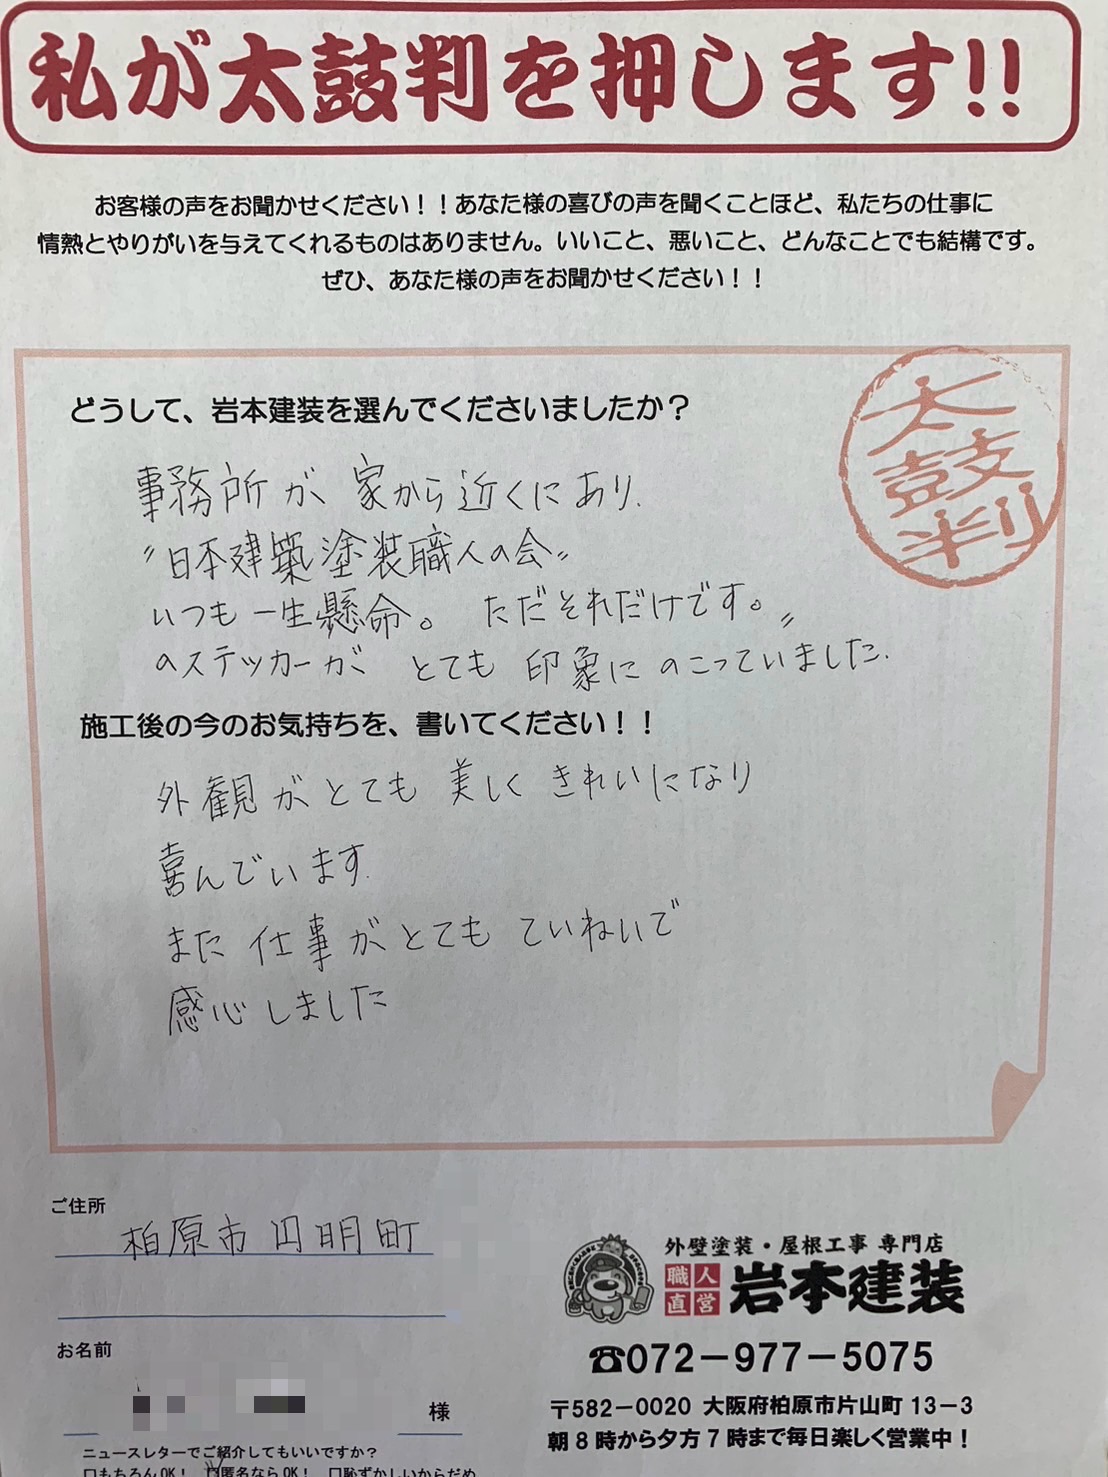 私が太鼓判を押します!!
お客様の声をお聞かせください！！あなた様の喜びの声を聞くことほど、私たちの仕事に
情熱とやりがいを与えてくれるものはありません。いいこと、悪いこと、どんなことでも結構です。
ぜひ、あなた様の声をお聞かせください！！
太鼓判
どうして、岩本建装を選んでくださいましたか？
事務所が 家から近くにあり.
〝日本建築塗装職人の会〟
いつも一生懸命。 ただそれだけです。〟
のステッカーが とても 印象に のこっていました.
施工後の今のお気持ちを、書いてください！！
外観がとても 美しく きれいになり
喜んでいます.
また 仕事がとても ていねいで
感心しました
ご住所
柏原市円明町
お名前
様
ニュースレターでご紹介してもいいですか？
口もちろんOK！ ☑匿名ならOK！ 口恥ずかしいからだめ
外壁塗装・屋根工事 専門店
職人直営 岩本建装
☎072－977－5075
〒582－0020 大阪府柏原市片山町13－3
朝8時から夕方7時まで毎日楽しく営業中！